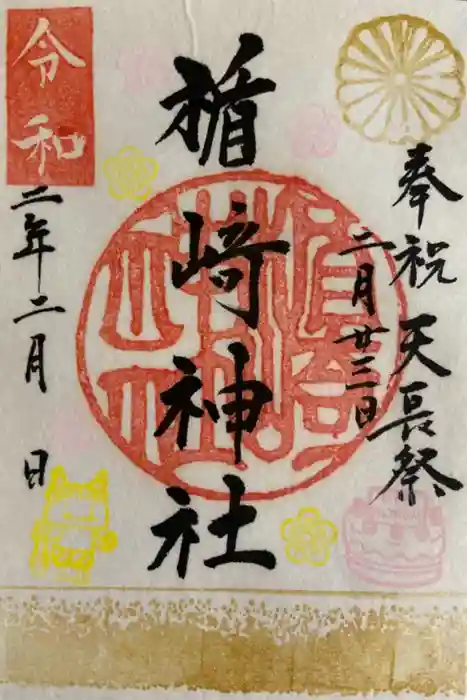 奉祝 天長祭
二月廿三日
楯﨑神社
令和
二年二月 日